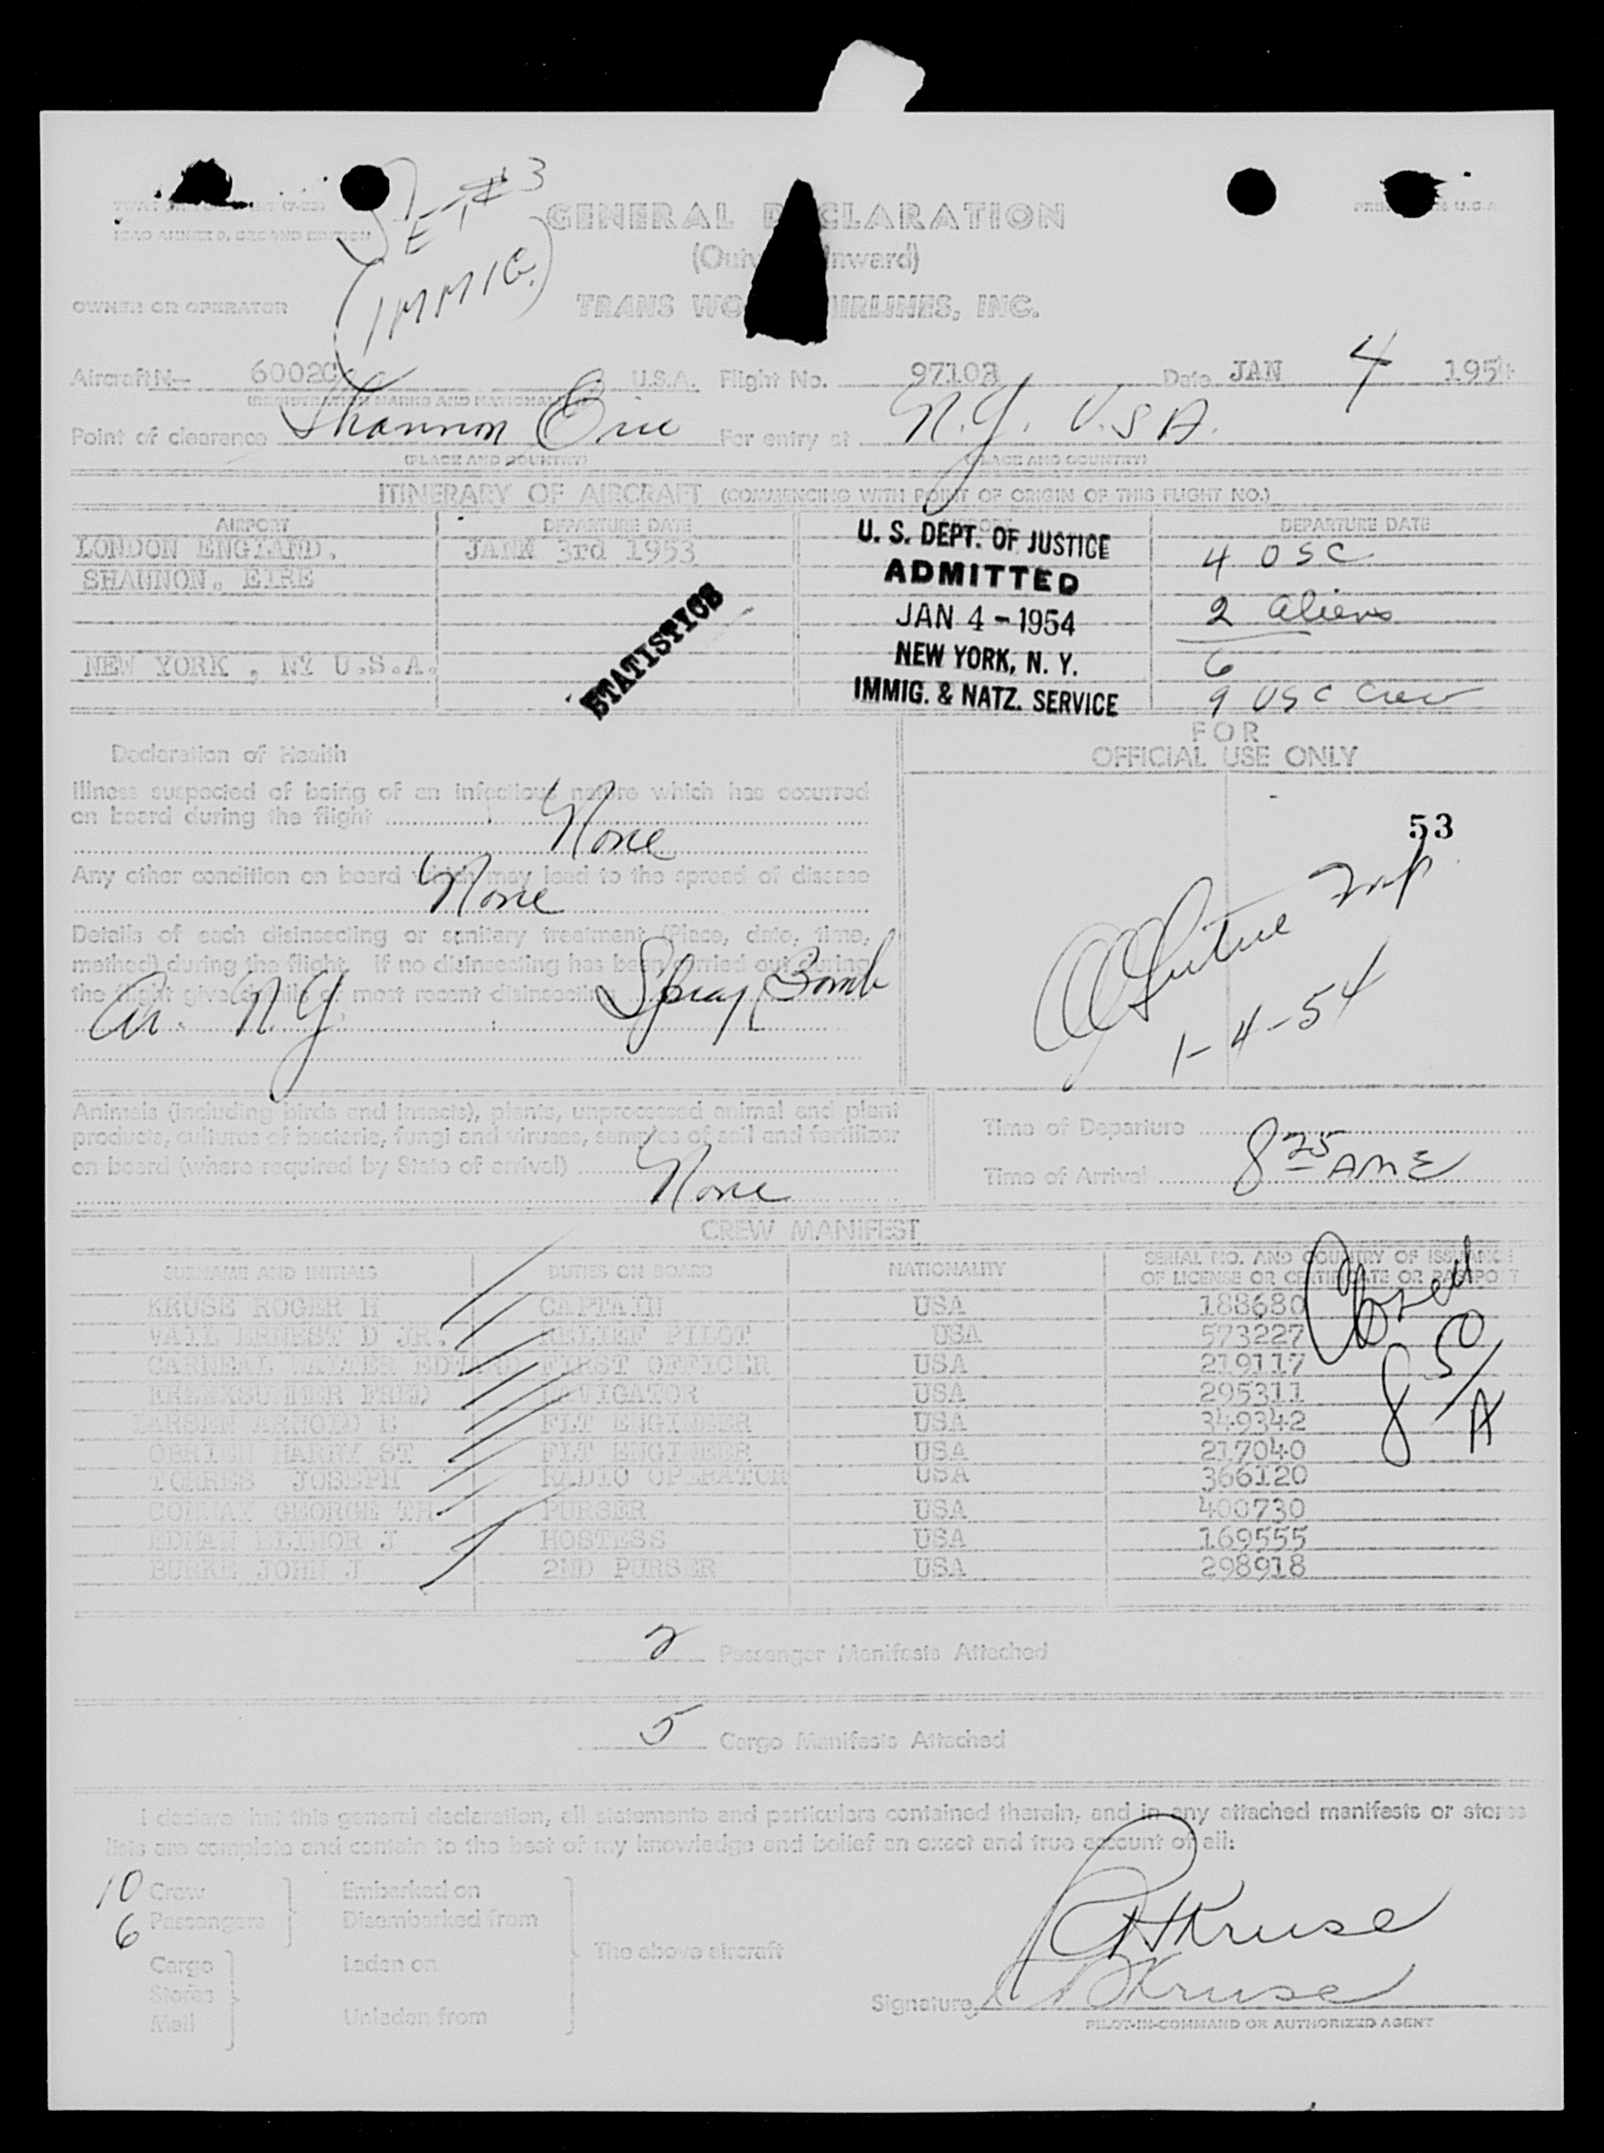 SET #3
(IMMIG.)
GENERAL DECLARATION
(Outward Inward)
OWNER OR OPERATOR
TRANS WORLD AIRLINES, INC.
Aircraft No. 6002C U.S.A. Flight No. 97103 Date JAN 4 1954
(REGISTRATION MARKS AND NATIONALITY)
Point of clearance Shannon Eire For entry at N.Y. U.S.A.
(PLACE AND COUNTRY) (PLACE AND COUNTRY)
ITINERARY OF AIRCRAFT (COMMENCING WITH POINT OF ORIGIN OF THIS FLIGHT NO.)
AIRPORT DEPARTURE DATE DEPARTURE DATE
LONDON ENGLAND. JANN 3rd 1953
SHANNON, EIRE
NEW YORK , NY U.S.A.
STATISTICS
U. S. DEPT. OF JUSTICE
ADMITTED
JAN 4 - 1954
NEW YORK, N. Y.
IMMIG. & NATZ. SERVICE
4 USC
2 aliens
6
9 USC Crew
Declaration of Health
FOR
OFFICIAL USE ONLY
Illness suspected of being of an infectious nature which has occurred
on board during the flight
None
Any other condition on board which may lead to the spread of disease
None
Details of each disinsecting or sanitary treatment (Place, date, time,
method) during the flight. If no disinsecting has been carried out during
the flight give details of most recent disinsecting
Ar. N.Y. Spray Bomb
53
1-4-54
Animals (including birds and insects), plants, unprocessed animal and plant
products, cultures of bacteria, fungi and viruses, samples of soil and fertilizer
on board (where required by State of arrival)
None
Time of Departure
Time of Arrival 8 25 AM E
CREW MANIFEST
SURNAME AND INITIALS DUTIES ON BOARD NATIONALITY SERIAL NO. AND COUNTRY OF ISSUANCE
OF LICENSE OR CERTIFICATE OR PASSPORT
KRUSE ROGER H CAPTAIN USA 188680
VAIL ERNEST D JR. RELIEF PILOT USA 573227
CARNEAL WALTER EDWARD FIRST OFFICER USA 219117
FRED NAVIGATOR USA 295311
ARNOLD FLT ENGINEER USA 349342
HARRY ST FLT ENGINEER USA 217040
TORRES JOSEPH RADIO OPERATOR USA 366120
CONWAY GEORGE TH PURSER USA 400730
EDMAN ELINOR J HOSTESS USA 169555
BURKE JOHN J 2ND PURSER USA 298918
Closed
8 50/A
2 Passenger Manifests Attached
5 Cargo Manifests Attached
I declare that this general declaration, all statements and particulars contained therein, and in any attached manifests or stores
lists are complete and contain to the best of my knowledge and belief an exact and true account of all:
10 Crew Embarked on
6 Passengers Disembarked from
The above aircraft
Cargo Laden on
Stores
Mail Unladen from
RHKruse
Signature RHKruse
PILOT-IN-COMMAND OR AUTHORIZED AGENT